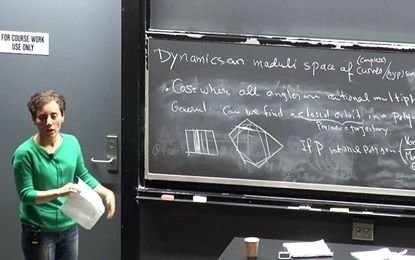 FOR COURSE WORK
USE ONLY
Dynamics on moduli space of (complex) curves /
• Case where all angles are rational multip
General. Can we find a closed orbit in a Poly
Periodic trajectory
If P rational Polygon